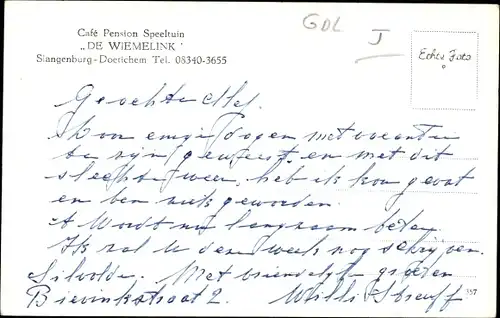 Café Pension Speeltuin
„DE WIEMELINK"
Slangenburg-Doetichem Tel. 08340-3655
GDL
J
Echte Foto
Geachte Mej.
Voor enige dagen met vacantie
te zijn geweest en met dit
slechte weer, heb ik kou gevat
en ben ziek geworden.
Wordt nu langzaam beter.
Ik zal U deze week nog schrijven.
Silvolde. Met vriendelijke groeten
Bievinkstraat 2. Willi
357